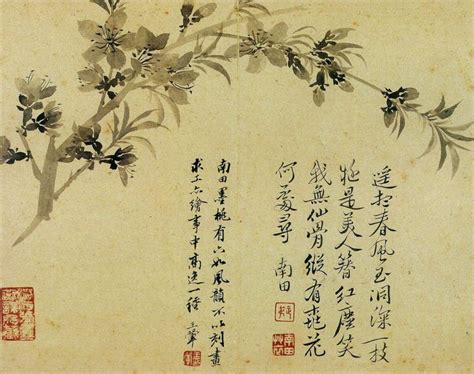 遥春風玉洞深一枝
是美人簪紅塵笑
我無仙骨縱有桃花
何處尋 南田
南田墨桃有六如風韻不以刻畫
求工亦繪事中高逸一種 王翬